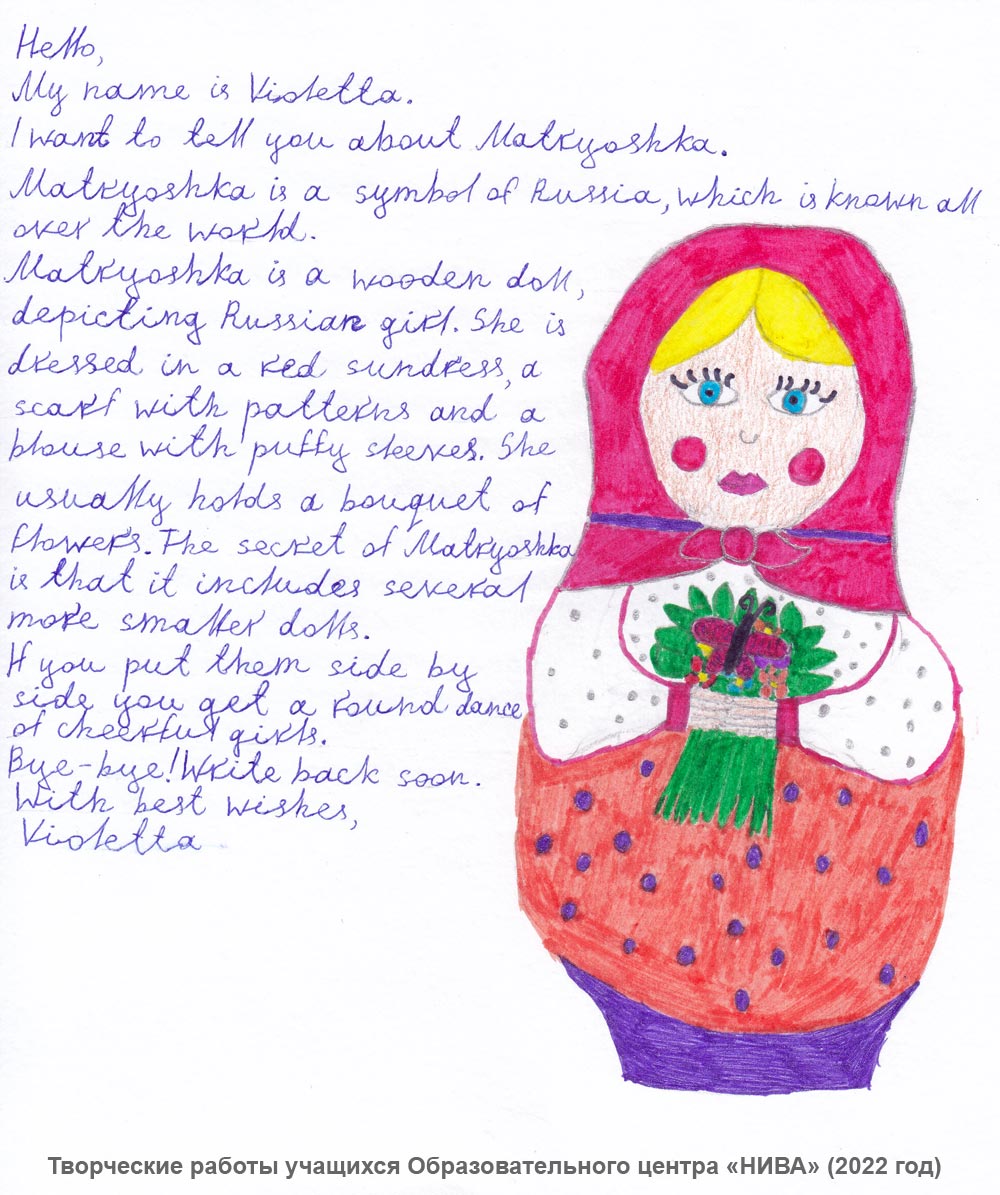 Hello,
My name is Violetta.
I want to tell you about Matryoshka.
Matryoshka is a symbol of Russia, which is known all
over the world.
Matryoshka is a wooden doll,
depicting Russian girl. She is
dressed in a red sundress, a
scarf with patterns and a
blouse with puffy sleeves. She
usually holds a bouquet of
flowers. The secret of Matryoshka
is that it includes several
more smaller dolls.
If you put them side by
side you get a round dance
of cheerful girls.
Bye-bye! Write back soon.
With best wishes,
Violetta
Творческие работы учащихся Образовательного центра «НИВА» (2022 год)